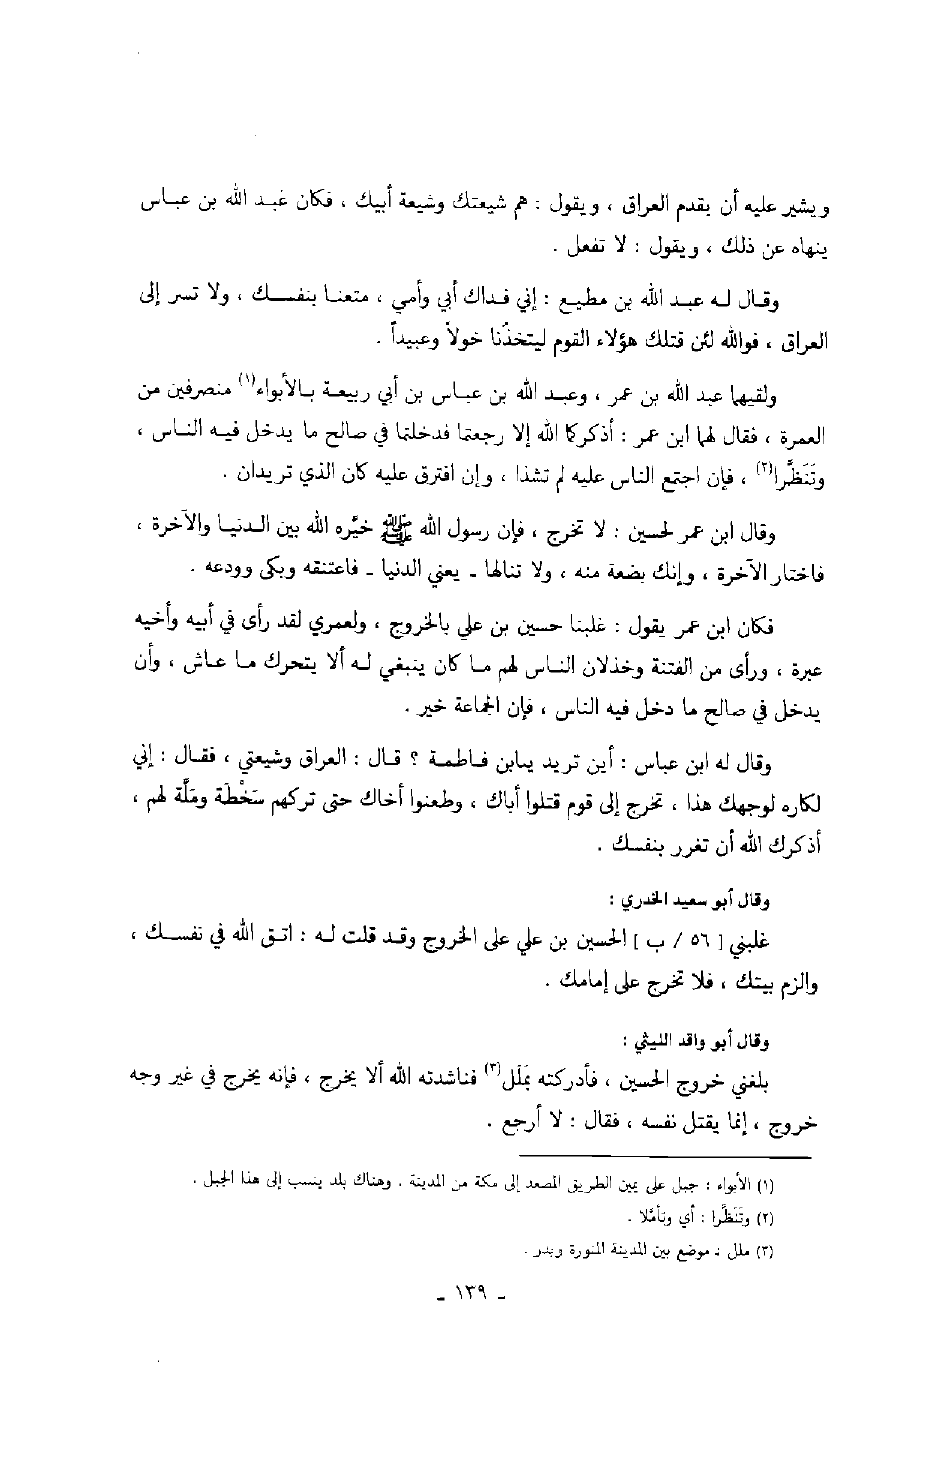 ويشير عليه أن يقدم العراق ، ويقول : هم شيعتك وشيعة أبيك ، فكان عبـد الله بن عبـاس
ينهاه عن ذلك ، ويقول : لا تفعل .
وقـال لـه عبـد الله بن مطيـع : إني فـداك أبي وأمي ، متعنـا بنفسـك ، ولا تسر إلى
العراق ، فوالله لئن قتلك هؤلاء القوم ليتخذُنا خولاً وعبيداً .
ولقيهما عبد الله بن عمر ، وعبـد الله بن عبـاس بن أبي ربيعـة بـالأبواء(١) منصرفين من
العمرة ، فقال لهما ابن عمر : أذكركا الله إلا رجعتما فدخلتما في صالح ما يدخل فيـه النـاس ،
وتَنَظَّرا(٢) ، فإن اجتمع الناس عليه لم تشذا ، وإن افترق عليه كان الذي تريدان .
وقال ابن عمر لحسين : لا تخرج ، فإن رسول الله ﷺ خيَّره الله بين الـدنيـا والآخرة ،
فاختار الآخرة ، وإنك بضعة منه ، ولا تنالها ـ يعني الدنيا ـ فاعتنقه وبكى وودعه .
فكان ابن عمر يقول : غلبنا حسين بن علي بالخروج ، ولعمري لقد رأى في أبيه وأخيه
عبرة ، ورأى من الفتنة وخذلان النـاس لهم مـا كان ينبغي لـه ألا يتحرك مـا عـاش ، وأن
يدخل في صالح ما دخل فيه الناس ، فإن الجماعة خير .
وقال له ابن عباس : أين تريد يـابن فـاطمـة ؟ قـال : العراق وشيعتي ، فقـال : إني
لكاره لوجهك هذا ، تخرج إلى قوم قتلوا أباك ، وطعنوا أخاك حتى تركهم سَخْطَة ومَلَّة لهم ،
أذكرك الله أن تغرر بنفسك .
وقال أبو سعيد الخدري :
غلبني [ ٥٦ / ب ] الحسين بن علي على الخروج وقـد قلت لـه : اتـق الله في نفسـك ،
والزم بيتك ، فلا تخرج على إمامك .
وقال أبو واقد الليثي :
بلغني خروج الحسين ، فأدركته بمَلَل(٣) فناشدته الله ألا يخرج ، فإنه يخرج في غير وجه
خروج ، إنما يقتل نفسه ، فقال : لا أرجع .
(١) الأبواء : جبل على يمين الطريق المصعد إلى مكة من المدينة . وهناك بلد ينسب إلى هذا الجبل .
(٢) وتَنَظَّرا : أي وتأمَّلا .
(٣) ملل : موضع بين المدينة المنورة وبدر .
ـ ١٣٩ ـ